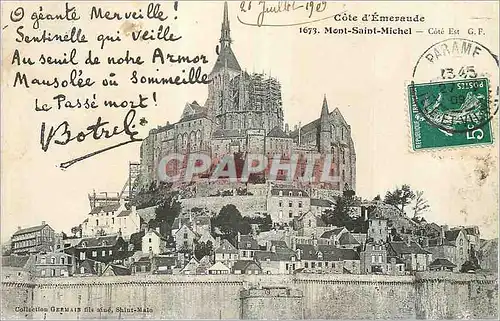 O géante Merveille !
Sentinelle qui veille
Au seuil de notre Armor
Mausolée où Sommeille
Le Passé mort !
Botrel
Juillet 1909
Côte d'Emeraude
1673. Mont-Saint-Michel — Côté Est G. F.
PARAMÉ
13 45
POSTES
5
CPARAMA
CPAPHIL
Collection GERMAIN fils aîné, Saint-Malo